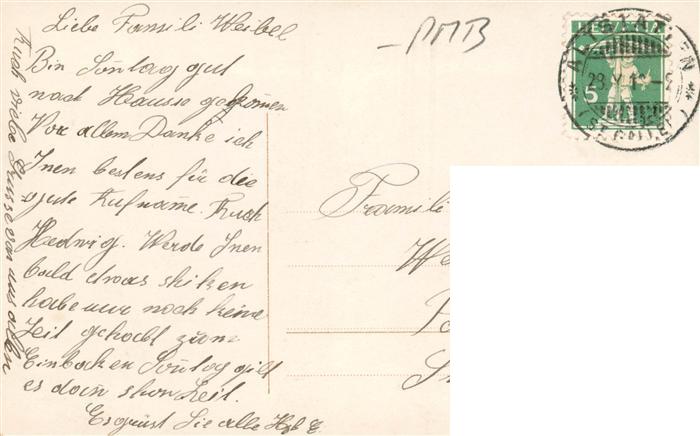 Liebe Famili Weibel
Bin Soñtag gut
nach Hausse gekomen
Vor allem Danke ich
Inen bestens für die
gute Aufname. Auch
Hedwig. Werde Inen
bald etwas shiken
habe nur noch keine
Zeit gehabt zum
Einbaken Soñtag gibt
es dañ shon Zeit.
Es grüst Sie alle
Auch viele Grüsse von uns allen
PMB
HELVETIA
ALTSTÄTTEN
5
(ST. GALLEN)
Famili